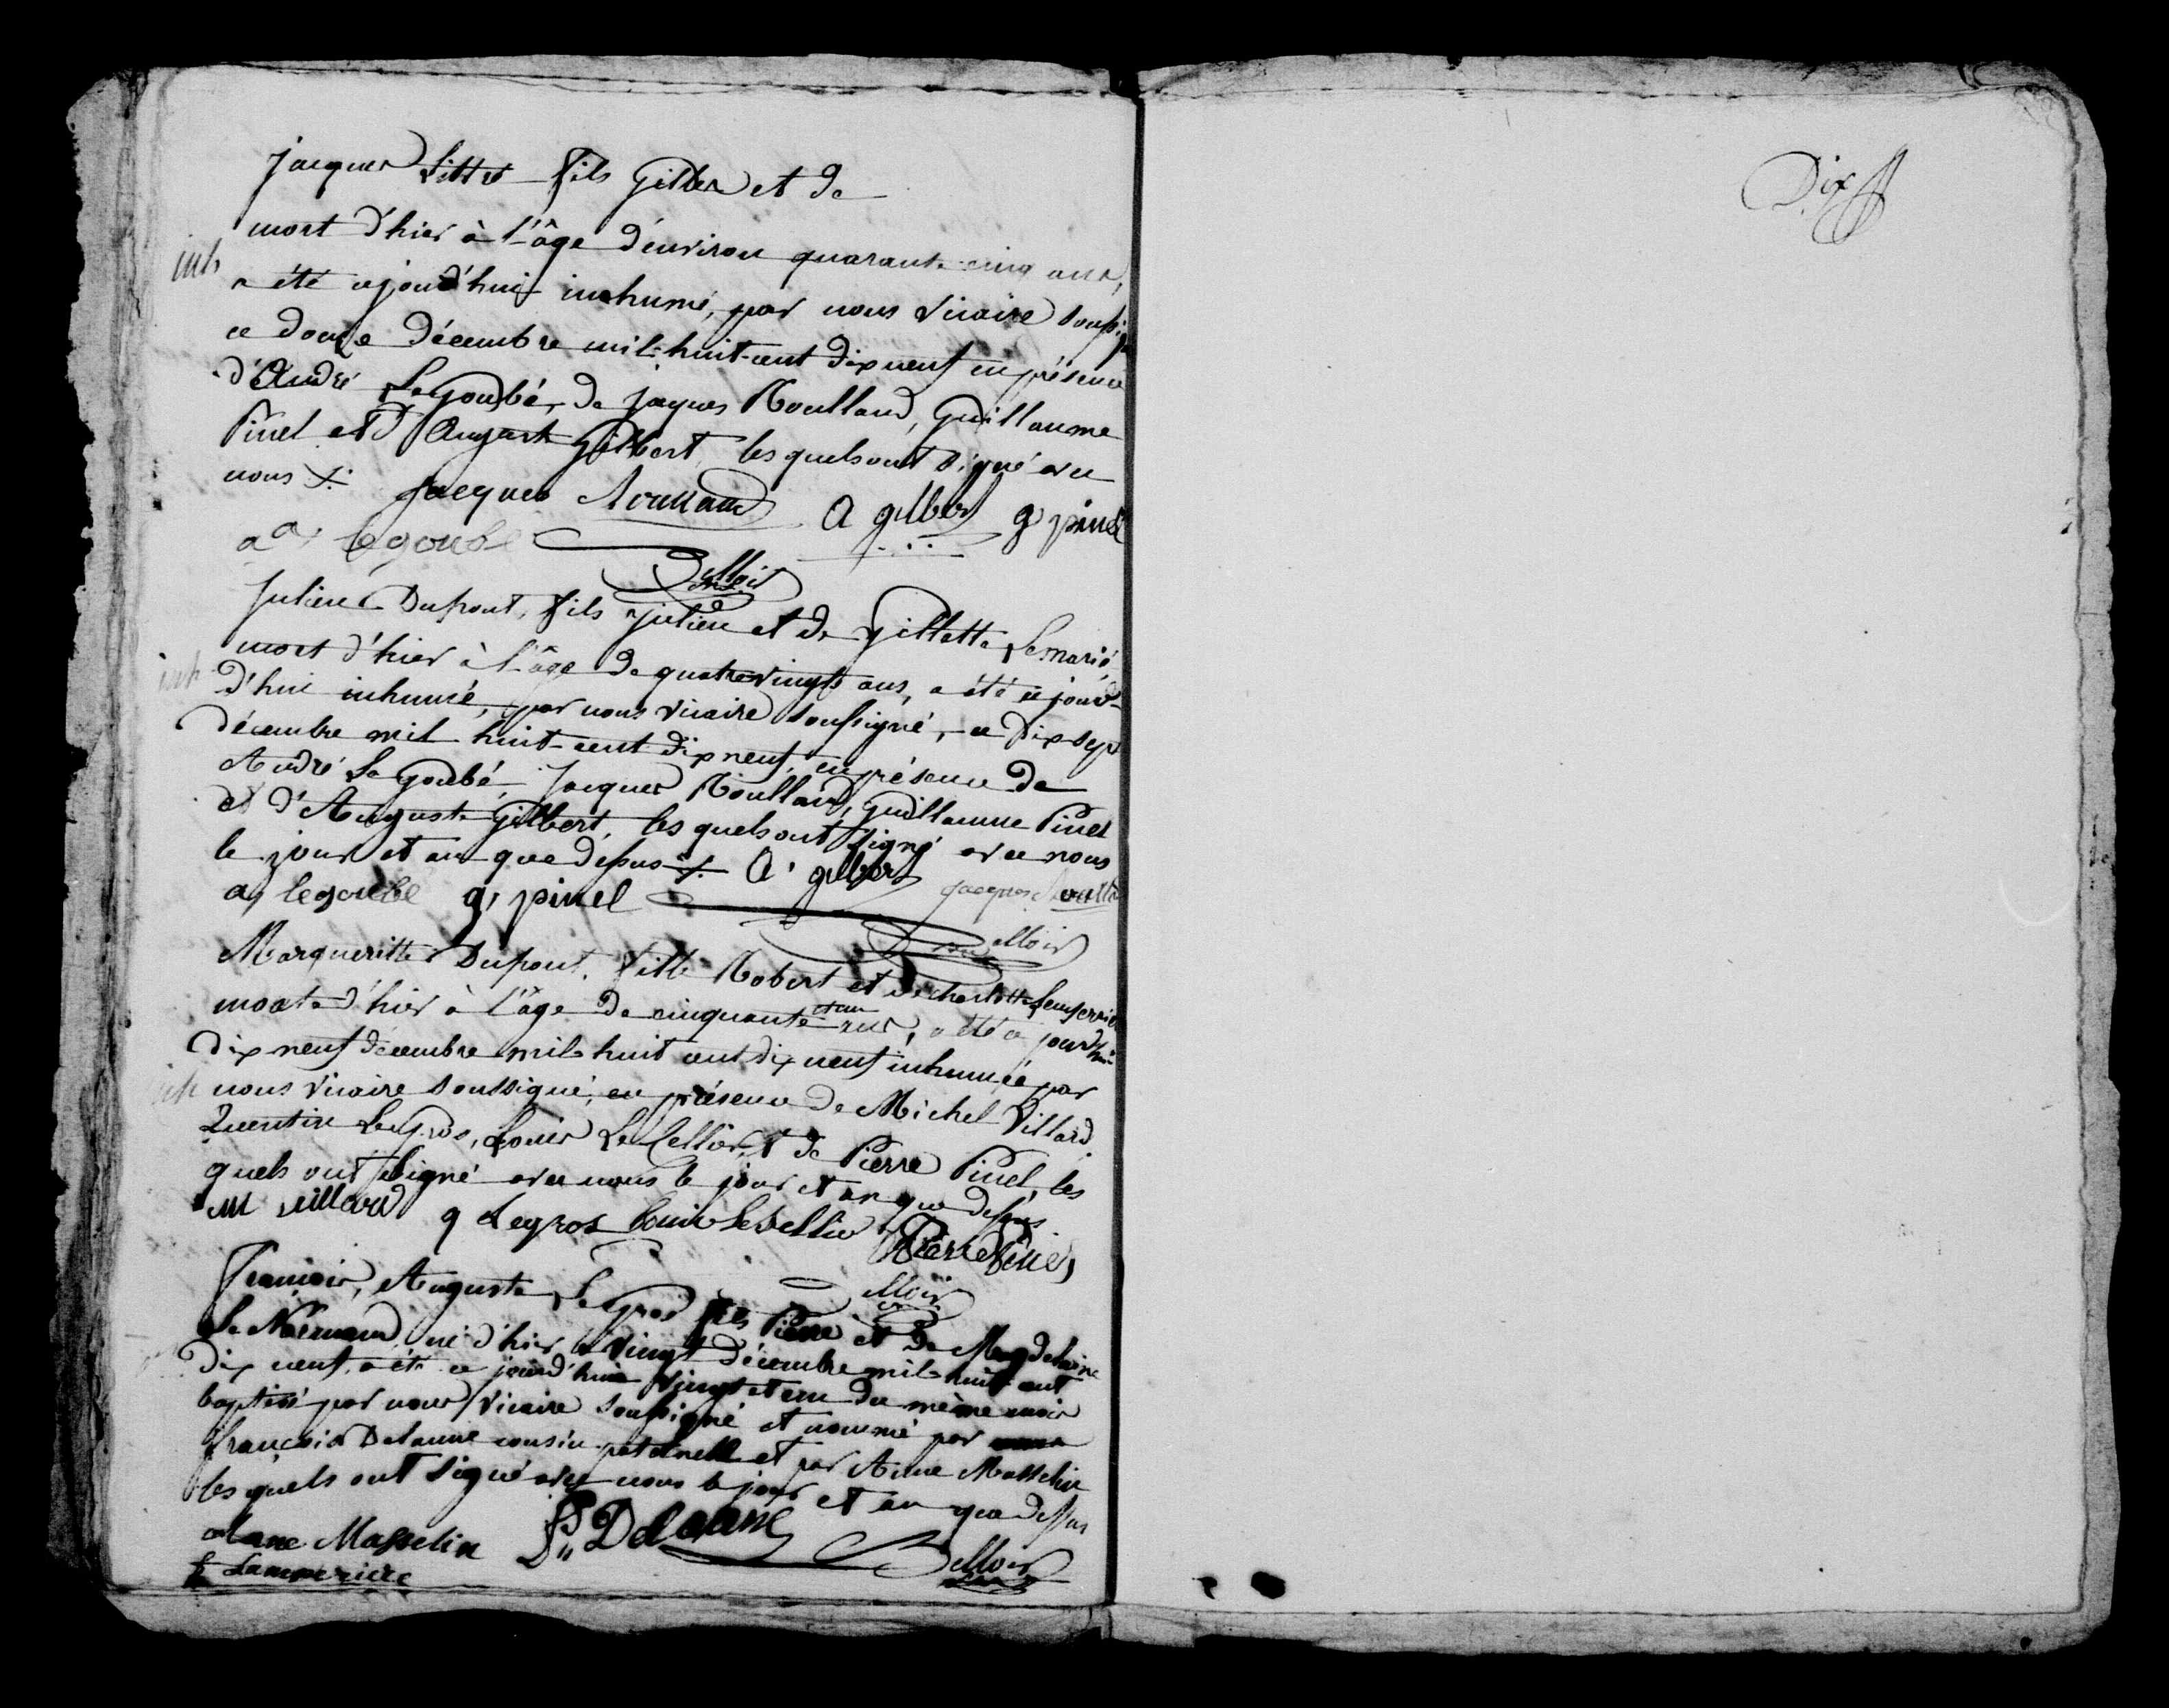 Jacques Littré fils Gilles et de
mort d'hier à l'âge d'environ quarante cinq ans,
inh
a été cejourd'hui inhumé, par nous vicaire soussig
ce douze décembre mil-huit-cent dix neuf en présence
d'André Le Goubé, de Jaques Roulland, Guillaume
Pinel et d'August Gilbert les quels ont signé avec
nous Jacques Roulland A gilbert g pinel
a legoubé
Julien Dupont, fils Julien et de Gillette Lemarié
mort d'hier à l'âge de quatrevingts ans, a été ce jour-
inh
d'hui inhumé, par nous vicaire soussigné, ce dix-sept
décembre mil-huit-cent dix neuf, en présence de
André Le Goubé, Jacques Roulland, Guillaume Pinel
et d'Auguste Gilbert, les quels ont signé avec nous
le jour et an que dessus A gilbert
a legoubé g pinel jacques
Margueritte Dupont, fille Robert et de Charlotte
morte d'hier à l'âge de cinquante et un ans, a été ce jourd'hui
dix neuf décembre mil-huit cent dix neuf inhumée par
inh
nous vicaire soussigné, en présence de Michel Villard
Quentin Legros, Louis Le Cellier, & de Pierre Pinel, les
quels ont signé avec nous le jour et an que dessus
M villard q Legros Louis Pierre Pinel
François, Auguste Le Gros fils Pierre et de Magdelaine
Le Normand, né d'hier vingt décembre mil-huit-cent
dix neuf, a été ce jourd'hui vingt et un du même mois
baptisé par nous vicaire soussigné et nommé par
françois Delaune cousin paternell et par Anne Masselin
les quels ont signé avec nous le jour et an que dessus
anne Masselin Delaune
Lamperiere
Dix